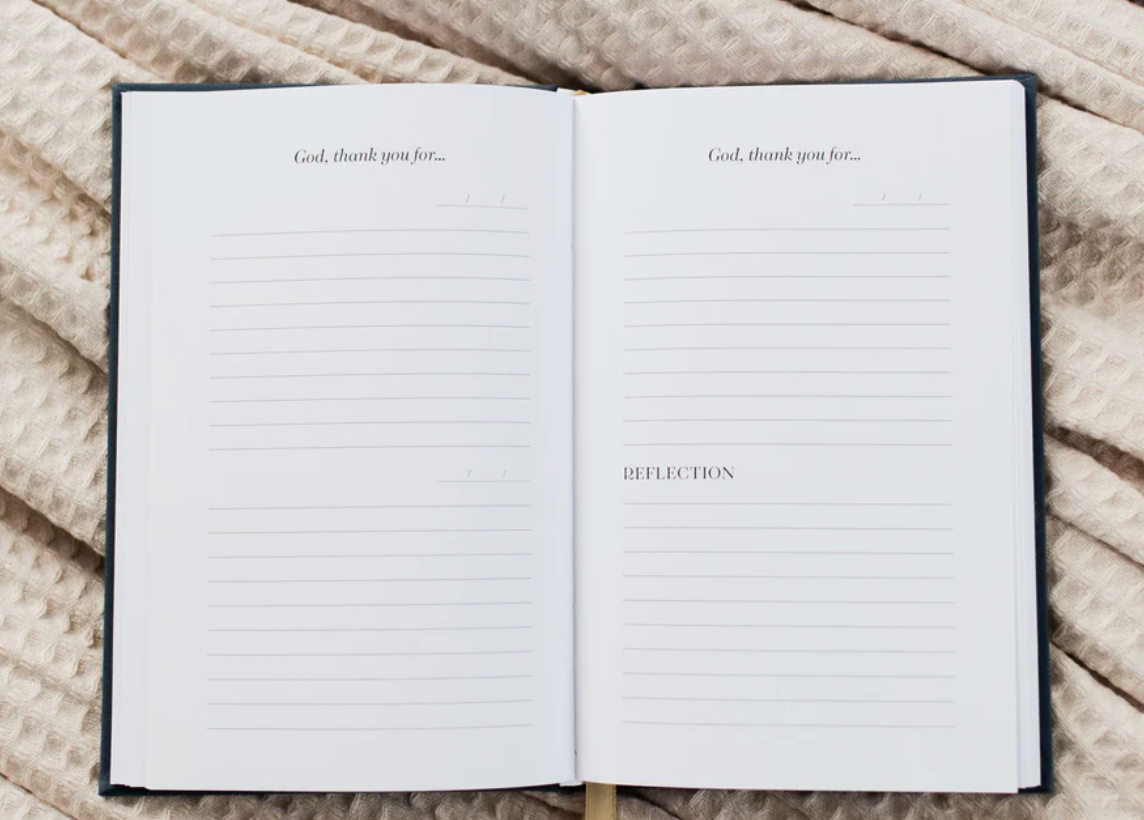 God, thank you for...
/ /
/ /
God, thank you for...
/ /
REFLECTION